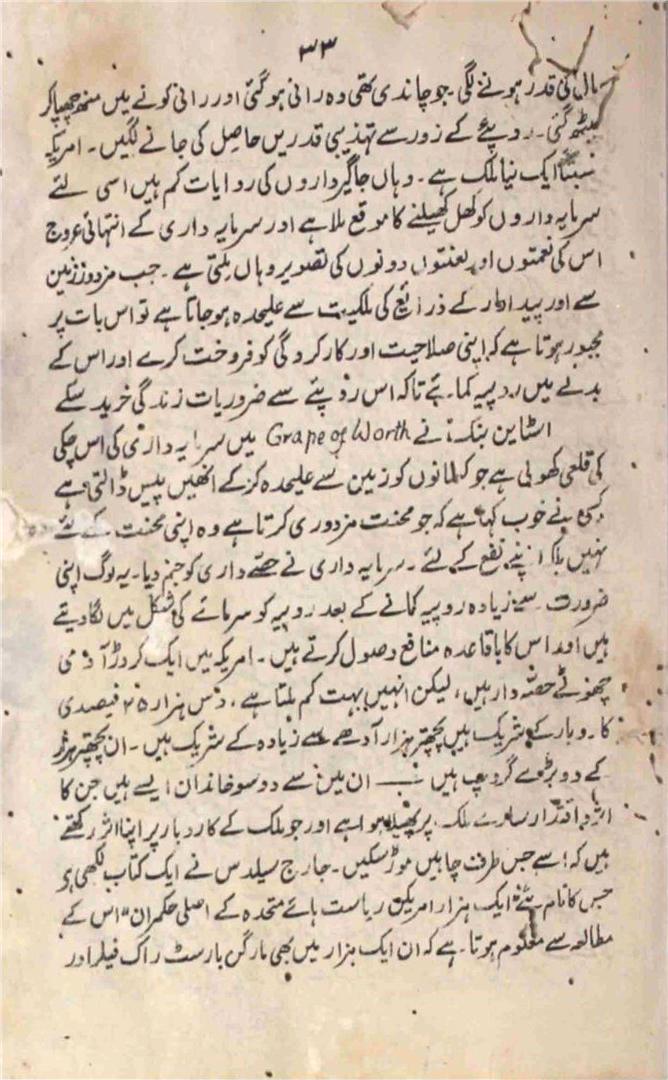 ۳۳
مال کی قدر ہونے لگی۔ جو چاندی تھی وہ رانی ہو گئی اور رانی کونے میں منھ چھپا کر
بیٹھ گئی۔ روپئے کے زور سے تہذیبی قدریں حاصل کی جانے لگیں۔ امریکہ
نسبتاً ایک نیا ملک ہے۔ وہاں جاگیرداروں کی روایات کم ہیں اسی لئے
سرمایہ داروں کو کھل کھیلنے کا موقع ملا ہے اور سرمایہ داری کے انتہائی عروج
اس کی نعمتوں اور لعنتوں دونوں کی تصویر وہاں ملتی ہے۔ جب مزدور زمین
سے اور پیداوار کے ذرائع کی ملکیت سے علیحدہ ہو جاتا ہے تو اس بات پر
مجبور ہوتا ہے کہ اپنی صلاحیت اور کارکردگی کو فروخت کرے اور اس کے
بدلے میں روپیہ کمائے تاکہ اس روپئے سے ضروریات زندگی خرید سکے
اسٹاین بک نے Grape of Worth میں سرمایہ داری کی اس چکی
کی قلعی کھولی ہے جو کسانوں کو زمین سے علیحدہ کر کے انھیں پیس ڈالتی ہے
کسی نے خوب کہا ہے کہ جو محنت مزدوری کرتا ہے وہ اپنی محنت کے لئے
نہیں بلکہ اپنے نفع کے لئے۔ سرمایہ داری نے حصے داری کو جنم دیا۔ یہ لوگ اپنی
ضرورت سے زیادہ روپیہ کمانے کے بعد روپیہ کو سرمائے کی شکل میں لگا دیتے
ہیں اور اس کا باقاعدہ منافع وصول کرتے ہیں۔ امریکہ میں ایک کروڑ آدمی
چھوٹے حصہ دار ہیں، لیکن انہیں بہت کم ملتا ہے، دس ہزار ۲۵ فیصدی
کاروبار کے شریک ہیں پچھتر ہزار آدھے سے زیادہ کے شریک ہیں۔ ان پچھتر ہزار
کے دو بڑے گروپ ہیں ـــ ان میں سے دو سو خاندان ایسے ہیں جن کا
اثر و اقتدار سارے ملک پر پھیلا ہوا ہے اور جو ملک کے کاروبار پر اپنا اثر رکھتے
ہیں کہ اسے جس طرف چاہیں موڑ سکیں۔ جارج سیلدس نے ایک کتاب لکھی ہے
جس کا نام ہے "ایک ہزار امریکن ریاست ہائے متحدہ کے اصلی حکمران" اس کے
مطالعہ سے معلوم ہوتا ہے کہ ان ایک ہزار میں بھی مارگن ہارسٹ راک فیلر اور